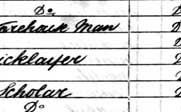 Do D
arehouse Man D
icklayer D
Scholar D
Do